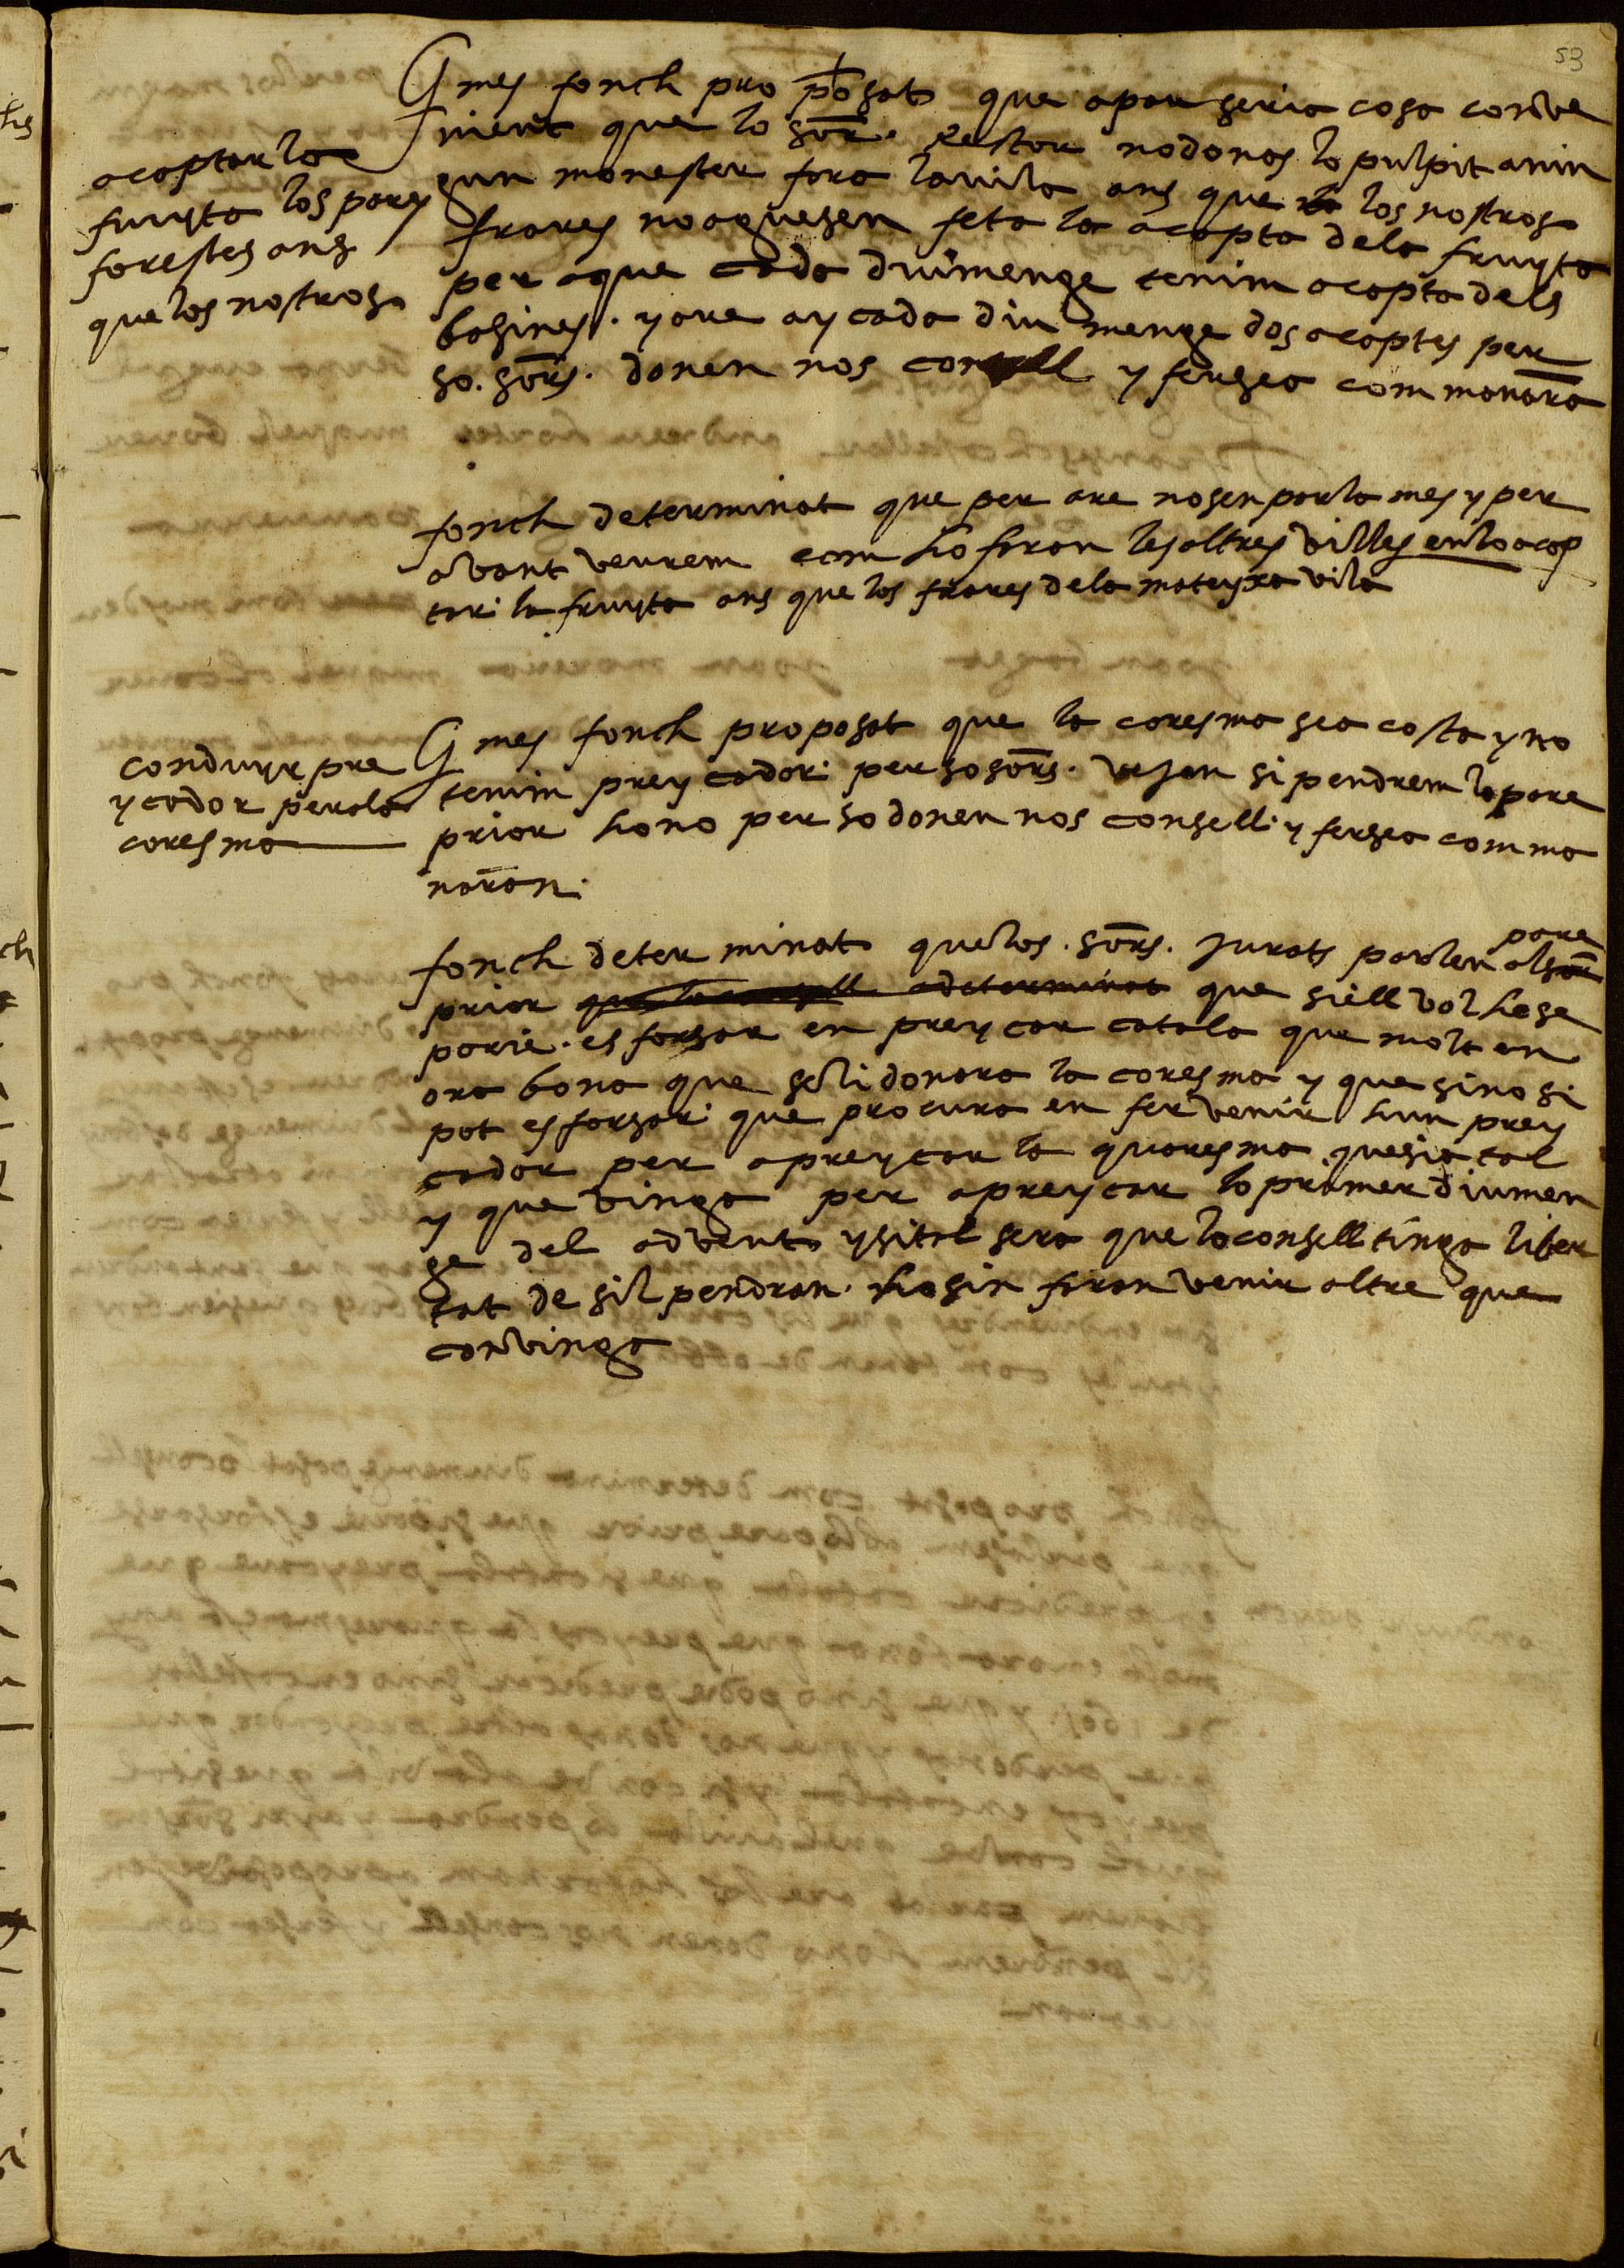 53
acaptar la
fruyta los pares
forestes ans
que los nostros
G mes fonch pro posat que a par seria cosa conve
nient que lo sōr. Rector no donas lo pulpit a nin
gun monester fora la vila ans que los nostros
frares no aguesen feta la acapta de la fruyta
per a que cada diumenge tenim acapta dels
basines. y are ay cada diu menge dos acaptes per
so. sōrs. donen nos consell y ferse a com manarā
fonch determinat que per are no sen parla mes y per
avant veurem com ho faran les altres villes en lo acap
tar la fruyta ans que los frares de la mateyxa vila
conduyr pre
ycador per a la
coresma
G mes fonch proposat que la coresma se acosta y no
tenim preycador per so sōrs. vejan si pendrem lo pare
prior ho no per so donen nos consell y ferse a com ma
naran.
fonch deter minat que los. sōrs. Jurats parlen al sōr pare
prior que lo consell a determinat que si ell vol he se
poria. es forsar en preycar catala que molt en
ora bona que se li donara la coresma y que si no si
pot esforsar que procura en fer venir hun prey
cador per a preycar la quaresma que sia tal
y que vinga per a preycar lo primer diumen
ge del advent y si tal sera que lo consell tinga liber
tat de sil pendran. ho sin faran venir altre que
convinga